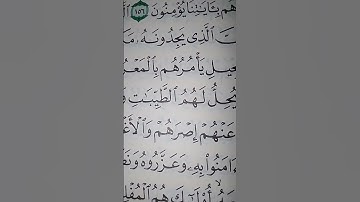 هُم بِـَٔايَٰتِنَا يُؤْمِنُونَ ١٥٦
ٱلَّذِى يَجِدُونَهُۥ
يَأْمُرُهُم بِٱلْمَعْرُ
يُحِلُّ لَهُمُ ٱلطَّيِّبَٰتِ وَ
عَنْهُمْ إِصْرَهُمْ وَٱلْأَغْ
ءَامَنُوا۟ بِهِۦ وَعَزَّرُوهُ وَنَصَ
أُو۟لَٰٓئِكَ هُمُ ٱلْمُفْلِ